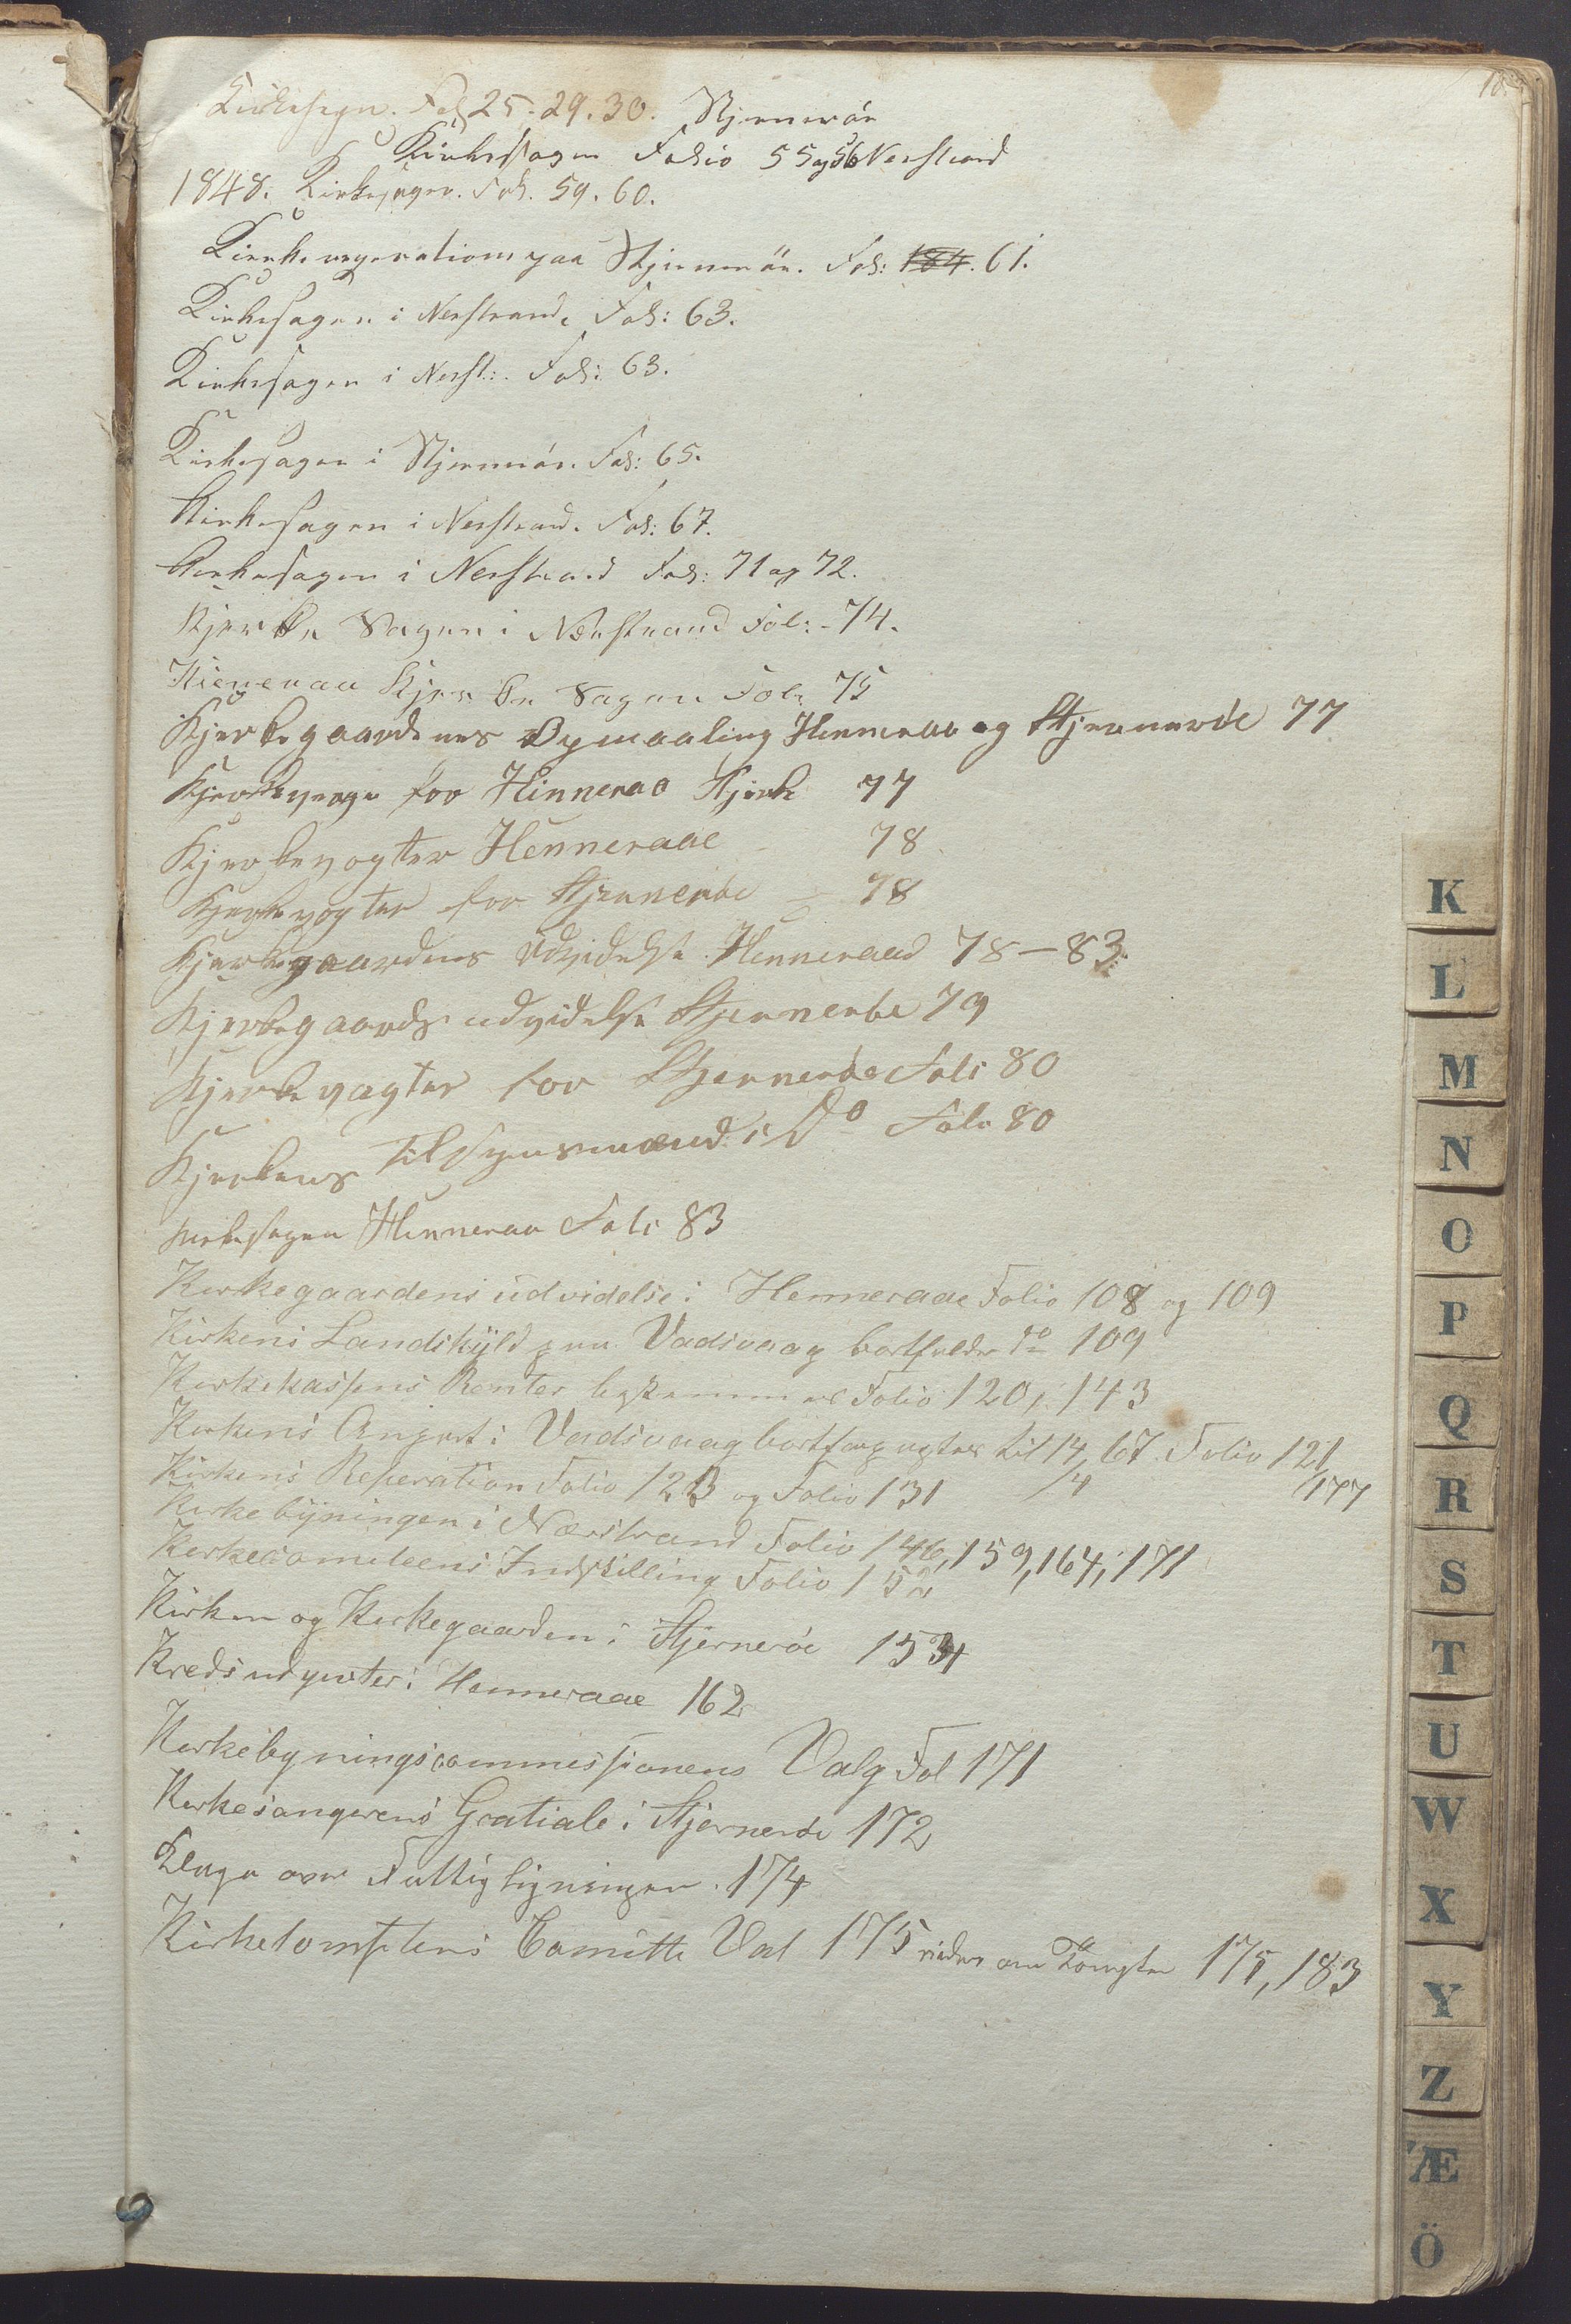 18.
Kirkesagn. Fol 25. 29. 30. Stjernerøe
Kirkesagen Folio 55 og 56 Nerstrand
1848. Kirkesagen. Fol. 59. 60.
Kirkereperationn paa Stjernerøe. Fol: 184. 61.
Kirkesagen i Nerstrand. Fol: 63.
Kirkesagen i Nerst:. Fol: 63.
Kirkesagen i Stjernerøe. Fol: 65.
Kirkesagen i Nerstrand. Fol: 67.
Kirkesagen i Nerstrand Fol: 71 og 72.
Kjerke Sagen i Nerstrand Fol: 74.
Hieneraa Kjerke Sagen Fol: 75
Kjerkegaardenes Opmaaling Henneraa og Stjernerøe 77
Kjerkeverge for Hinneraa Kjerk 77
Kjerkevogter Henneraae 78
Kjerkevogter for Stjernerøe 78
Kjerkegaardens Udvidelse Henneraae 78-83.
Kjerkegaards udvidelse Stjernerøe 79
Kjerkevagter for Stjernerøe Foli 80
Kjerkens Tilsynsmænd i Do Foli 80
Kirkesagen Hinneraa Foli 83
Kirkegaardens udvidelse i Henneraae Folio 108 og 109
Kirkens Landskyld paa Vadsvaag bortfalder do 109
Kirkekassens Renter bestemmes Folio 120, 143
Kirkens Anpart i Vadsvaag bortforpagtes til 14/4 67. Folio 121, 177
Kirkens Reperation Folio 123 og Folio 131
Kirkebyningen i Nærstrand Folio 146, 159, 164, 171
Kirkecomiteens Indstilling Folio 152
Kirken og Kirkegaarden i Stjernerøe 154
Kredsudgivter i Henneraae 162
Kirkebygningscommissionens Valg Fol 171
Kirkesangerens Gratiale i Stjernerøe 172
Klage over Fattigligningen. 174
Kirketomptens Comitte Val 175 om Tompten 175, 183
K
L
M
N
O
P
Q
R
S
T
U
W
X
Y
Z
Æ
Ö